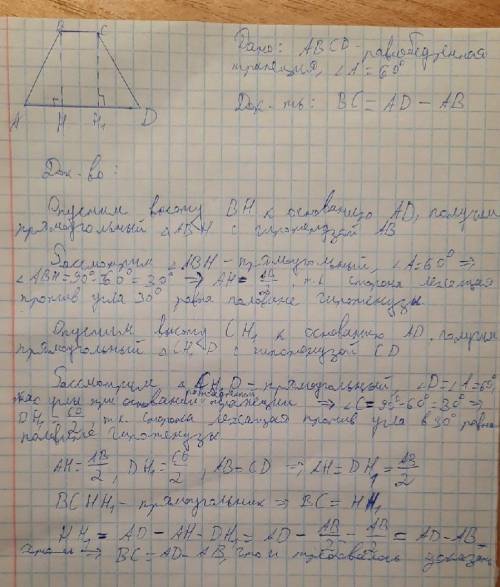 B C
A H H₁ D
Дано: ABCD - равнобедренная
трапеция, ∠A = 60°
Док-ть: BC = AD - AB
Док-во:
Опустим высоту BH к основанию AD, получим
прямоугольный △ABH с гипотенузой AB
Рассмотрим △ABH - прямоугольный, ∠A=60° ⇒
∠ABH=90°-60°=30° ⇒ AH = AB/2, т.к сторона лежащая
против угла 30° равна половине гипотенузы
Опустим высоту CH₁ к основанию AD, получим
прямоугольный △CH₁D с гипотенузой CD
Рассмотрим △CH₁D - прямоугольный, ∠D=∠A=60°,
как углы при основании равнобедренной трапеции ⇒ ∠C=90°-60°=30° ⇒
DH₁ = CD/2 т.к. сторона лежащая против угла в 30° равна
половине гипотенузы
AH = AB/2, DH₁ = CD/2, AB = CD ⇒ AH = DH₁ = AB/2
BCHH₁ - прямоугольник ⇒ BC = HH₁
HH₁ = AD - AH - DH₁ = AD - AB/2 - AB/2 = AD - AB
⇒ BC = AD - AB, что и требовалось доказать